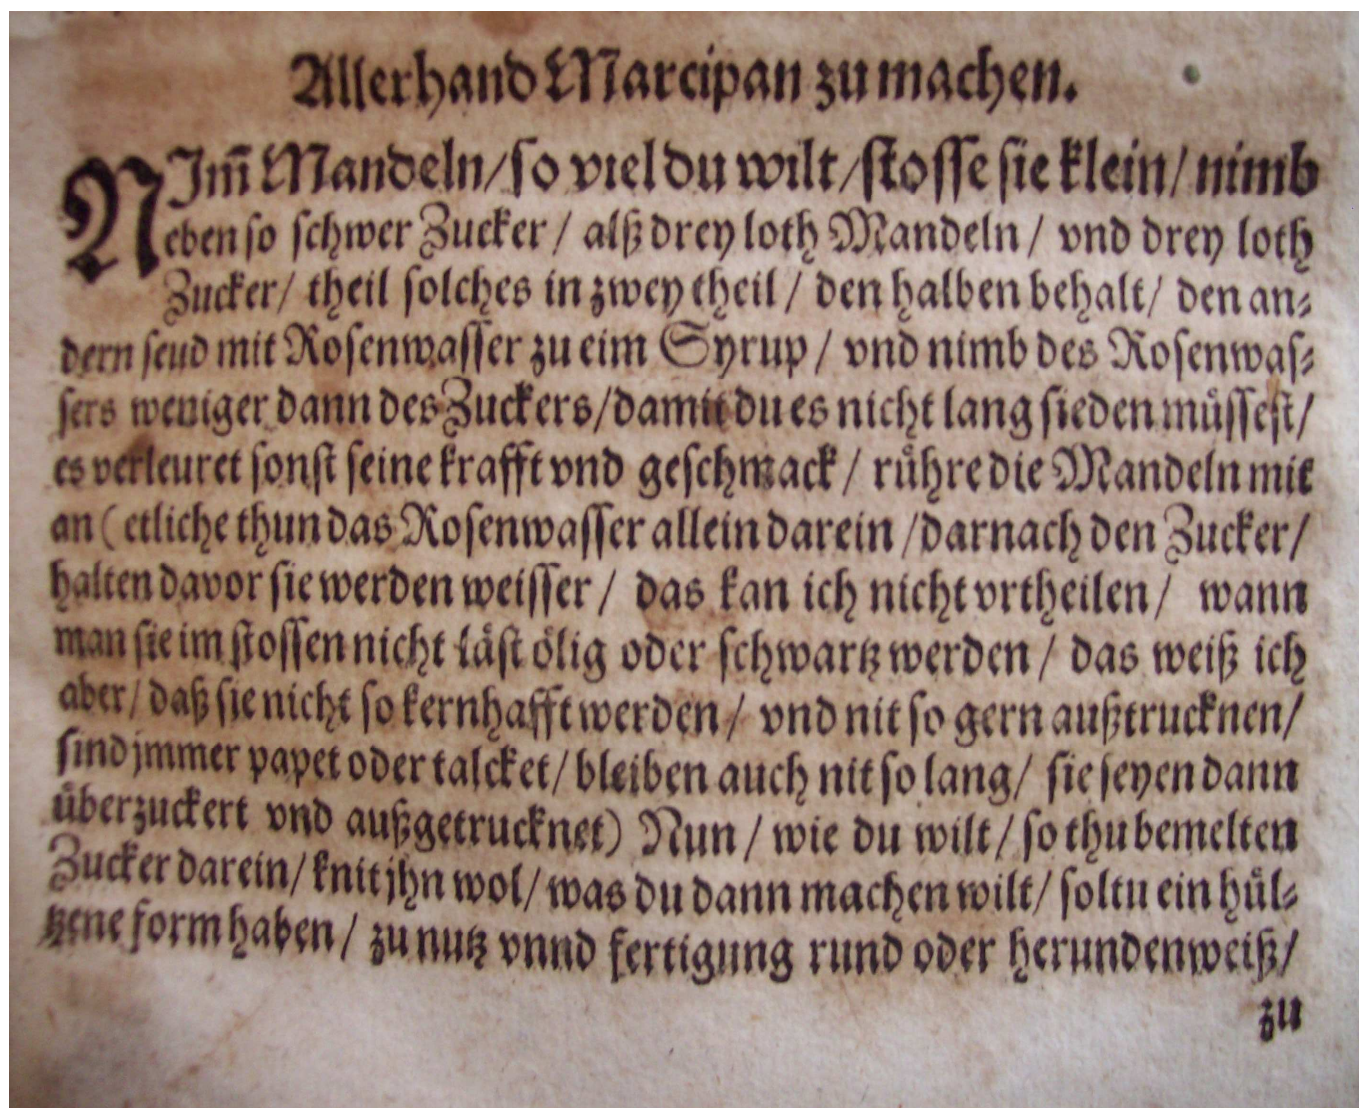 Allerhand Marcipan zu machen.
NJm̃ Mandeln/ ſo viel du wilt/ ſtoſſe ſie klein/ nimb
eben ſo ſchwer Zucker/ alß drey loth Mandeln/ vnd drey loth
Zucker/ theil ſolches in zwey theil/ den halben behalt/ den an⸗
dern ſeud mit Roſenwaſſer zu eim Syrup/ vnd nimb des Roſenwaſ⸗
ſers weniger dann des Zuckers/ damit du es nicht lang ſieden müſſeſt/
es verleuret ſonſt ſeine krafft vnd geſchmack/ rühre die Mandeln mit
an (etliche thun das Roſenwaſſer allein darein/ darnach den Zucker/
halten davor ſie werden weiſſer/ das kan ich nicht vrtheilen/ wann
man ſie im ſtoſſen nicht läſt ölig oder ſchwartz werden/ das weiß ich
aber/ daß ſie nicht ſo kernhafft werden/ vnd nit ſo gern außtrucknen/
ſind jmmer papet oder talcket/ bleiben auch nit ſo lang/ ſie ſeyen dann
überzuckert vnd außgetrucknet) Nun/ wie du wilt/ ſo thu bemelten
Zucker darein/ knit jhn wol/ was du dann machen wilt/ ſoltu ein hül⸗
tzene form haben/ zu nutz vnnd fertigung rund oder herundenweiß/
zu